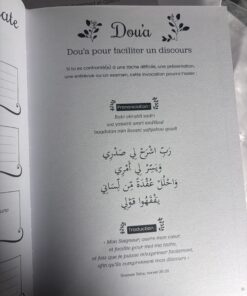 Dou'a
Dou'a pour faciliter un discours
Si tu es confronté(e) à une tâche difficile, une présentation,
une entrevue ou un examen, cette invocation pourra t'aider
Prononciation
Rabi ishrahli sadri
wa yassirli amri
yafqahou qawli
رَبِّ اشْرَحْ لِي صَدْرِي
وَيَسِّرْ لِي أَمْرِي
وَاحْلُلْ عُقْدَةً مِّن لِّسَانِي
يَفْقَهُوا قَوْلِي
Traduction
- Mon Seigneur, ouvre mon cœur,
et facilite pour moi ma tâche,
et fais que je puisse m'exprimer facilement,
afin qu'ils comprennent mon discours -